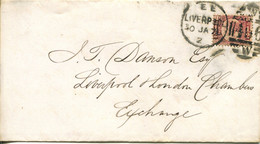 EE
LIVERPOOL
30 JA
2
J. T. Danson Esq
Liverpool & London Chambers
Exchange